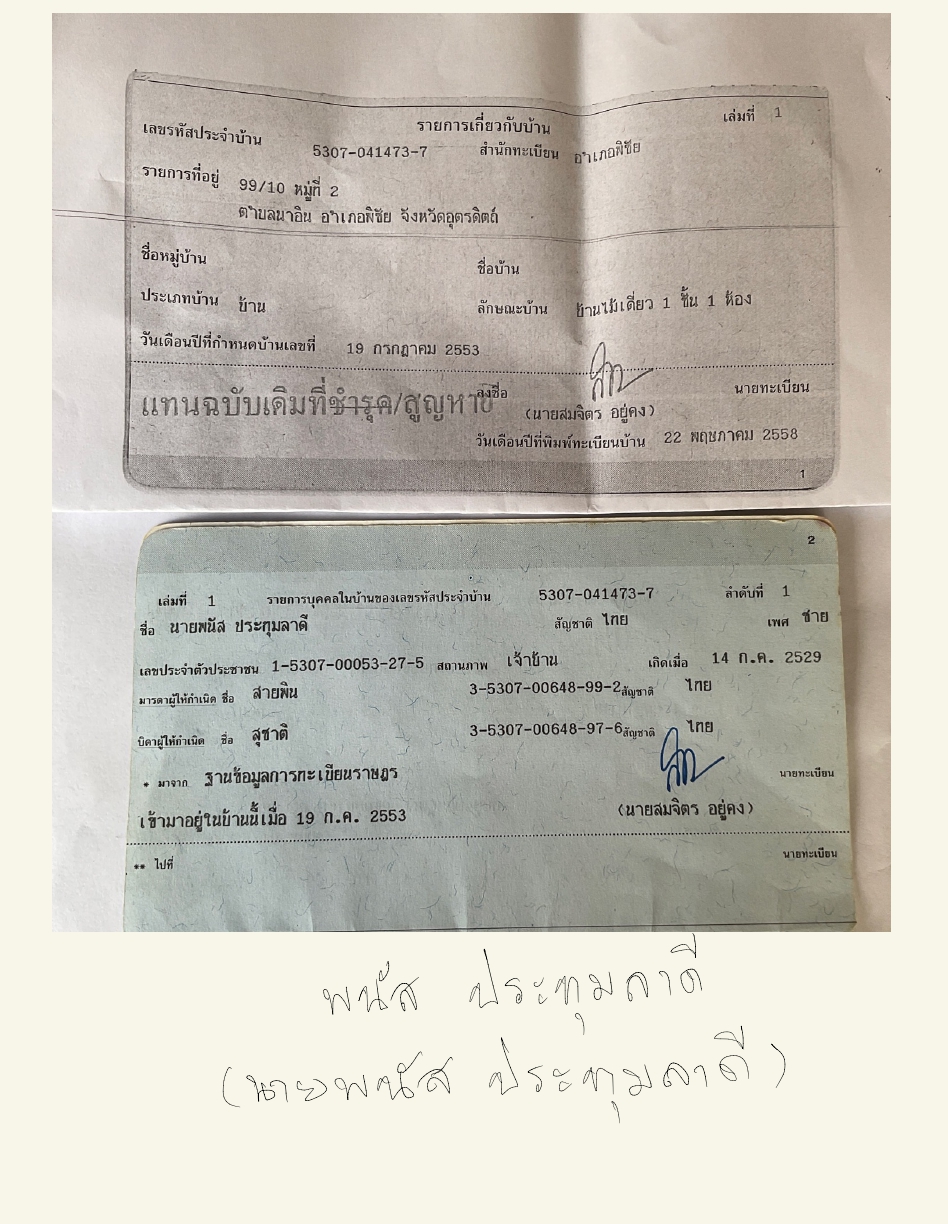 รายการเกี่ยวกับบ้าน เล่มที่ 1
เลขรหัสประจำบ้าน 5307-041473-7 สำนักทะเบียน อำเภอพิชัย
รายการที่อยู่ 99/10 หมู่ที่ 2
ตำบลนาอิน อำเภอพิชัย จังหวัดอุตรดิตถ์
ชื่อหมู่บ้าน ชื่อบ้าน
ประเภทบ้าน บ้าน ลักษณะบ้าน บ้านไม้เดี่ยว 1 ชั้น 1 ห้อง
วันเดือนปีที่กำหนดบ้านเลขที่ 19 กรกฎาคม 2553
ลงชื่อ นายทะเบียน
แทนฉบับเดิมที่ชำรุด/สูญหาย
(นายสมจิตร อยู่คง)
วันเดือนปีที่พิมพ์ทะเบียนบ้าน 22 พฤษภาคม 2558
1
2
เล่มที่ 1 รายการบุคคลในบ้านของเลขรหัสประจำบ้าน 5307-041473-7 ลำดับที่ 1
ชื่อ นายพนัส ประทุมลาดี สัญชาติ ไทย เพศ ชาย
เลขประจำตัวประชาชน 1-5307-00053-27-5 สถานภาพ เจ้าบ้าน เกิดเมื่อ 14 ก.ค. 2529
มารดาผู้ให้กำเนิด ชื่อ สายพิน 3-5307-00648-99-2 สัญชาติ ไทย
บิดาผู้ให้กำเนิด ชื่อ สุชาติ 3-5307-00648-97-6 สัญชาติ ไทย
* มาจาก ฐานข้อมูลการทะเบียนราษฎร นายทะเบียน
เข้ามาอยู่ในบ้านนี้เมื่อ 19 ก.ค. 2553 (นายสมจิตร อยู่คง)
** ไปที่ นายทะเบียน
พนัส ประทุมลาดี
(นายพนัส ประทุมลาดี)